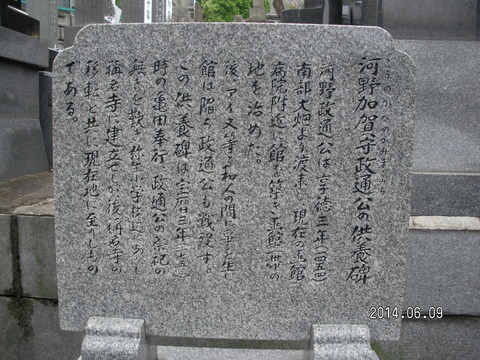 河野加賀守政通公の供養碑
こうのかがのかみまさみち
河野政通公は享徳三年(一四五四)
南部大畑より渡来し現在の函館
病院附近に館を築き函館一帯の
地を治めた。
後、アイヌ等と和人の間に争を生じ
館は陥ち政通公も戦没す。
この供養碑は宝暦三年(一七五三)
時の亀田奉行、政通公の祭祀の
無きを歎き弥生小学校辺りにあり
称名寺に建立せしが後称名寺の
移転と共に現在地に至りしもの
である。
2014.06.09